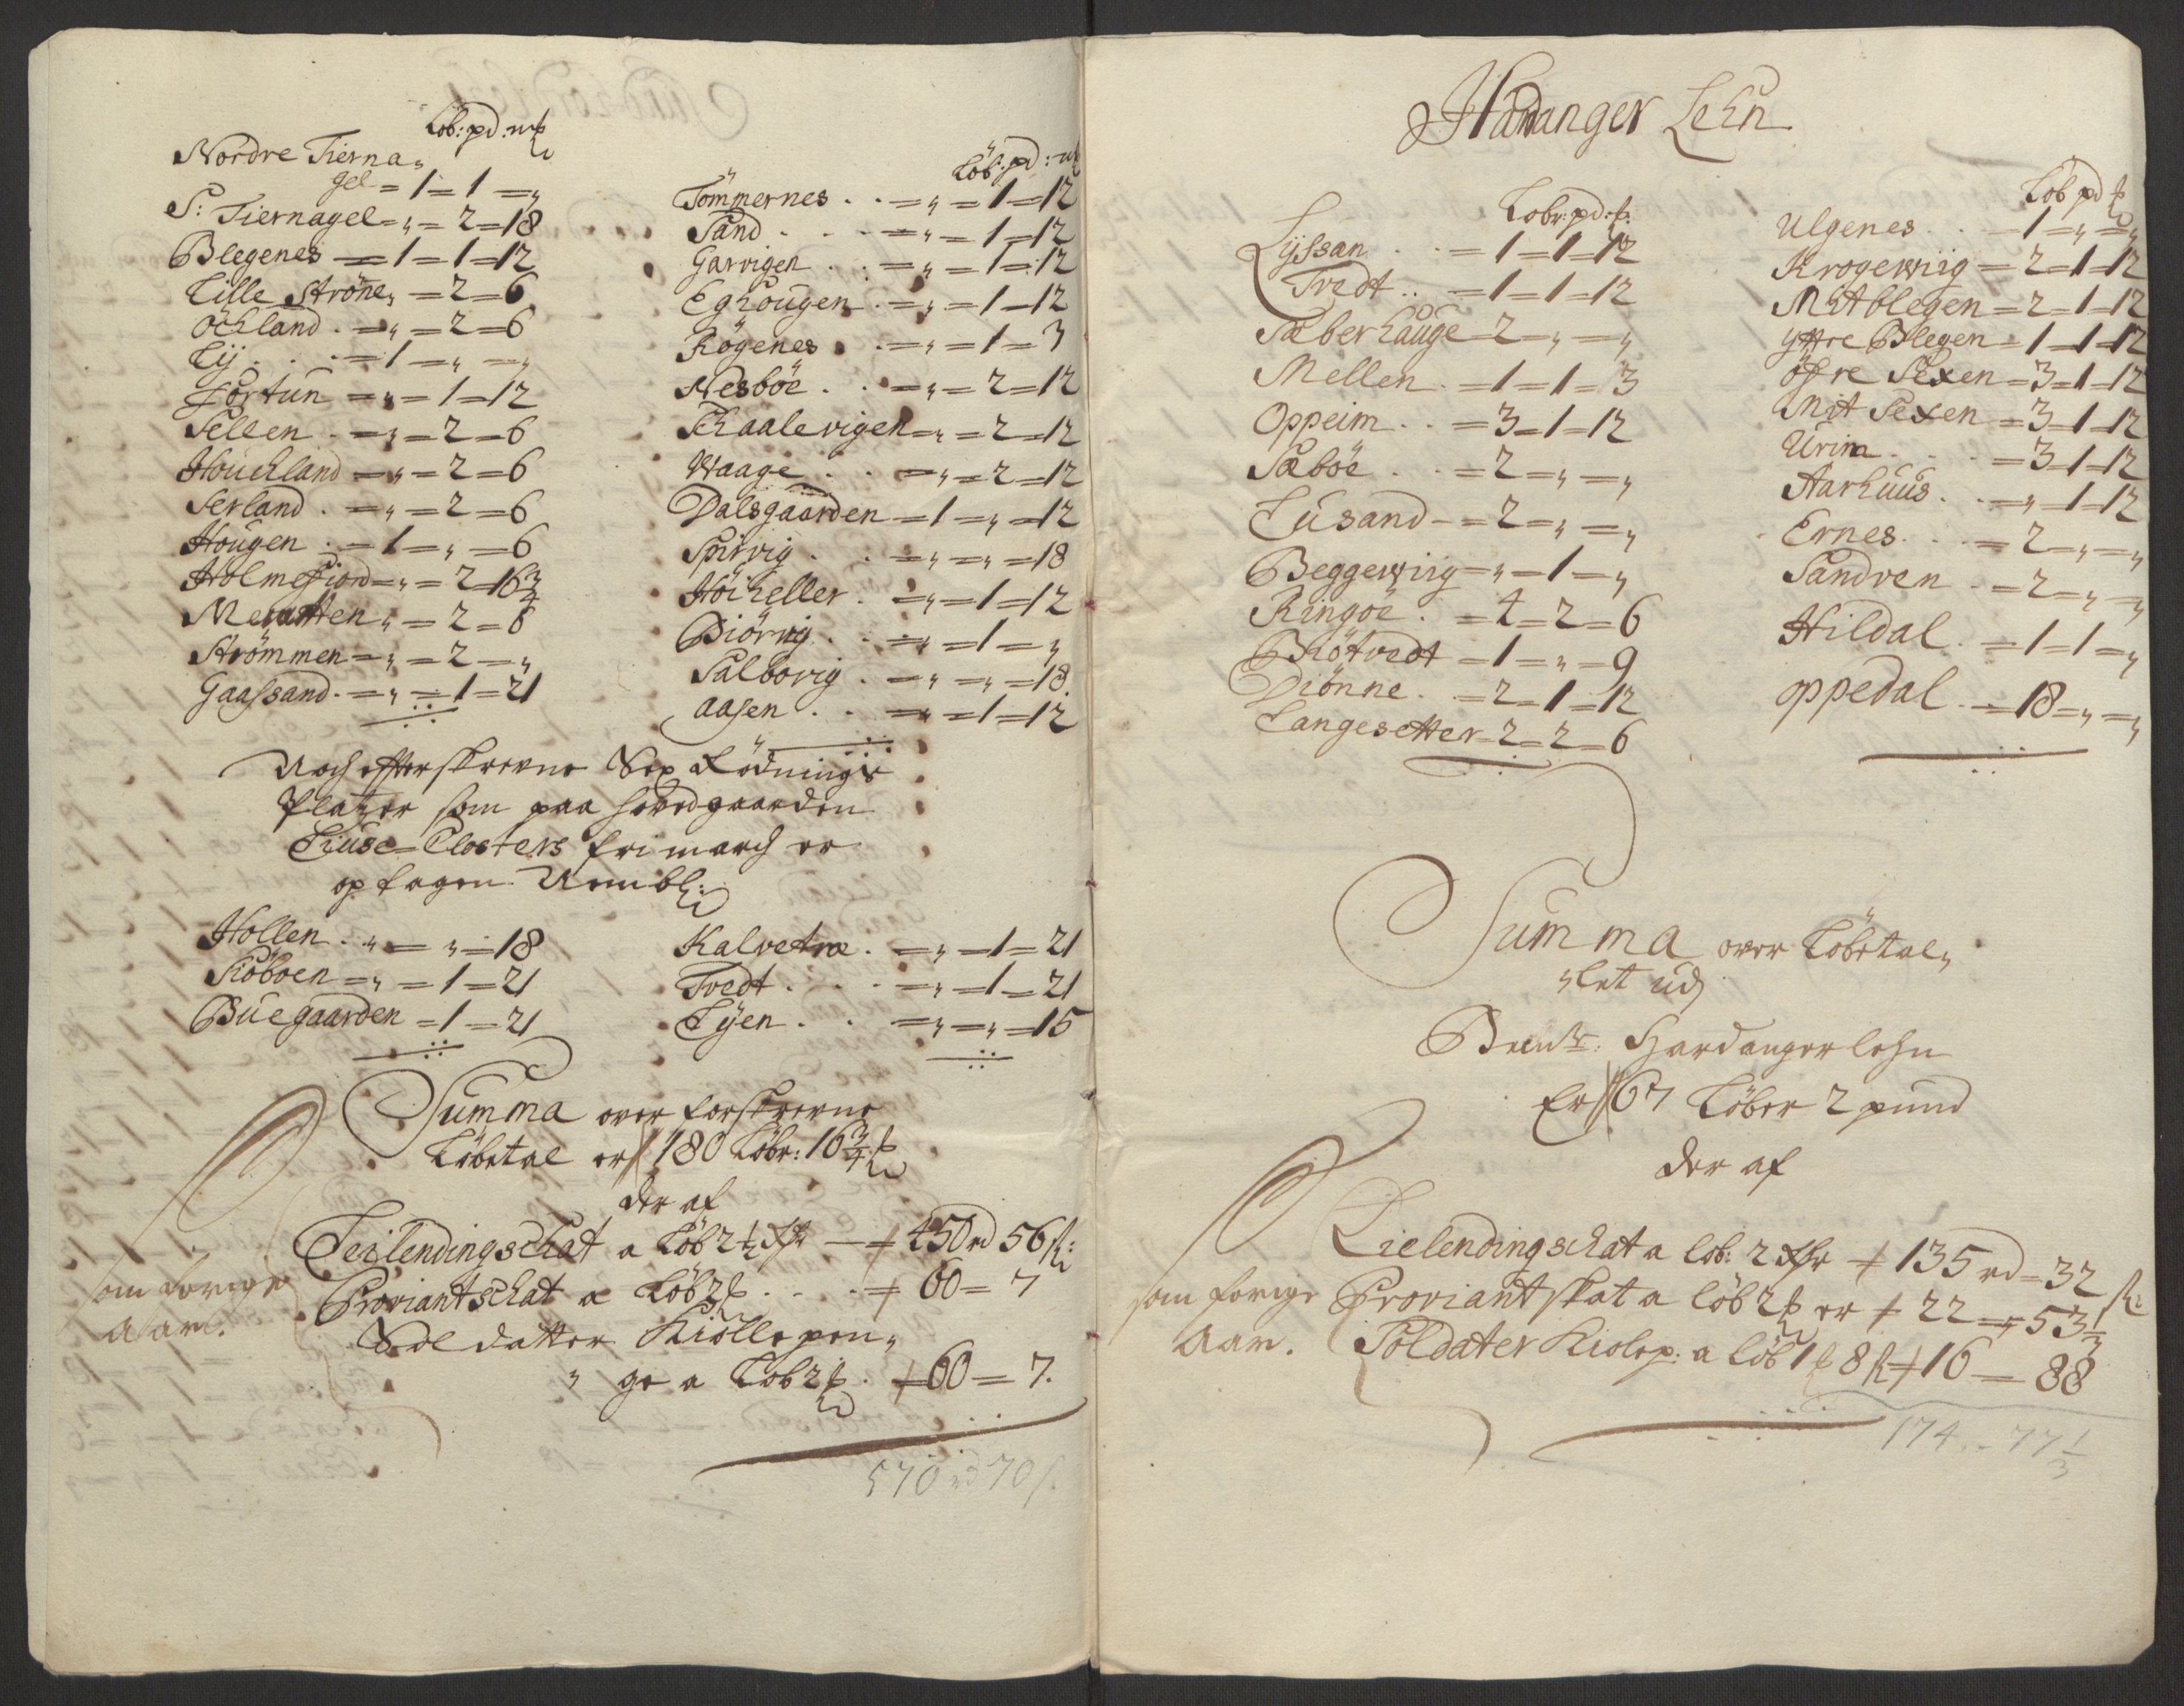 Löb: pd: mk
Nordre Tierna„
gel = 1 = 1 = „
S: Tiernagel = „ = 2 = 18
Blegenes = 1 = 1 = 12
Lille Ströne „ = 2 = 6
Öchland . = „ = 2 = 6
Lij . . . = 1 = „ = „
Förtun = „ = 1 = 12
Sellen . = „ = 2 = 6
Houchland = „ = 2 = 6
Serland . = „ = 2 = 6
Hougen . = 1 = „ = 6
Holmefiord = „ = 2 = 16¾
Mehatten „ = 2 = 6
Strömmen = „ = 2 = „
Gaassand . = „ = 1 = 21
Löb: pd: mk
Tömmernes . . = „ = 1 = 12
Sand . . . = „ = 1 = 12
Garvigen . : = „ = 1 = 12
Eghougen . = „ = 1 = 12
Rögenes . . = „ = 1 = 3
Nesböe . . = „ = 2 = 12
Skaalevigen = „ = 2 = 12
Waage . . . = „ = 2 = 12
Dalsgaarden = 1 = „ = 12
Spirvig . . = „ = „ = 18
Höiheller . = „ = 1 = 12
Biörvig . . = „ = 1 = „
Salborig . = „ = „ = 18
Aasen . . = „ = 1 = 12
Noch efterskrevne Sex Rödnings
Platzer som paa hovedgaarden
Liuse-Closters frimarch er
optagen Nembl:
Hollen . „ = „ = 18
Skoboen = „ = 1 = 21
Buegaarden = 1 = 21
Kalvetræ . = „ = 1 = 21
Tvedt . . . = „ = 1 = 21
Lÿen . . = „ = „ = 15
Summa over forskrevne
Löbetal er 180 Löbr: 16¾ ꝉ
der af
Leilendingschat a Löb 2½ ꝉ — 450 rd 56 ſ:
Proviantschat a Löb 2 ꝉ . . . = 60 = 7
Soldatter Kiollepen„
„ ge a Löb 2 ꝉ . = 60 = 7.
som forrige
Aar.
570 rd 70 ſ
Hardanger Lehn
Löbr: pd: ꝉ:
Lyssan . . = 1 = 1 = 12
Tvedt . . = 1 = 1 = 12
Sæberhauge = 2 = „ = „
Mellen . = 1 = 1 = 3
Oppeim . . = 3 = 1 = 12
Sæböe . . = 2 = „ = „
Lusand - = 2 = „ = „
Beggewiig = „ = 1 = „
Ringöe . = 4 = 2 = 6
Brötvedt = 1 = „ = 9
Diönne . = 2 = 1 = 12
Langesetter = 2 = 2 = 6
Löb pd ꝉ
Ulgenes . . = 1 = „ = „
Krogewiig = 2 = 1 = 12
Mitblegen = 2 = 1 = 12
yttre Blegen = 1 = 1 = 12
öfre Sexen = 3 = 1 = 12
Mit Sexen = 3 = 1 = 12
Urim . . . = 3 = 1 = 12
Aarhuus . . = „ = 1 = 12
Ernes . . . = 2 = „ = „
Sandven . = 2 = „ = „
Hildal . = 1 = 1 = „
oppedal . = 18 = „ = „
Summa over Löbetal„
„let udj
Hardangerlehn
Er 67 Löber 2 pund
der af
Lielendingschat a löb: 2 ꝉ = 135 rd = 32 ſ:
Proviantskat a löb 2 ꝉ er = 22 = 53⅓
Soldater Kiolep: a löb 1 ꝉ 8 ſ = 16 = 88
som forige
Aar.
174 . - 77⅓